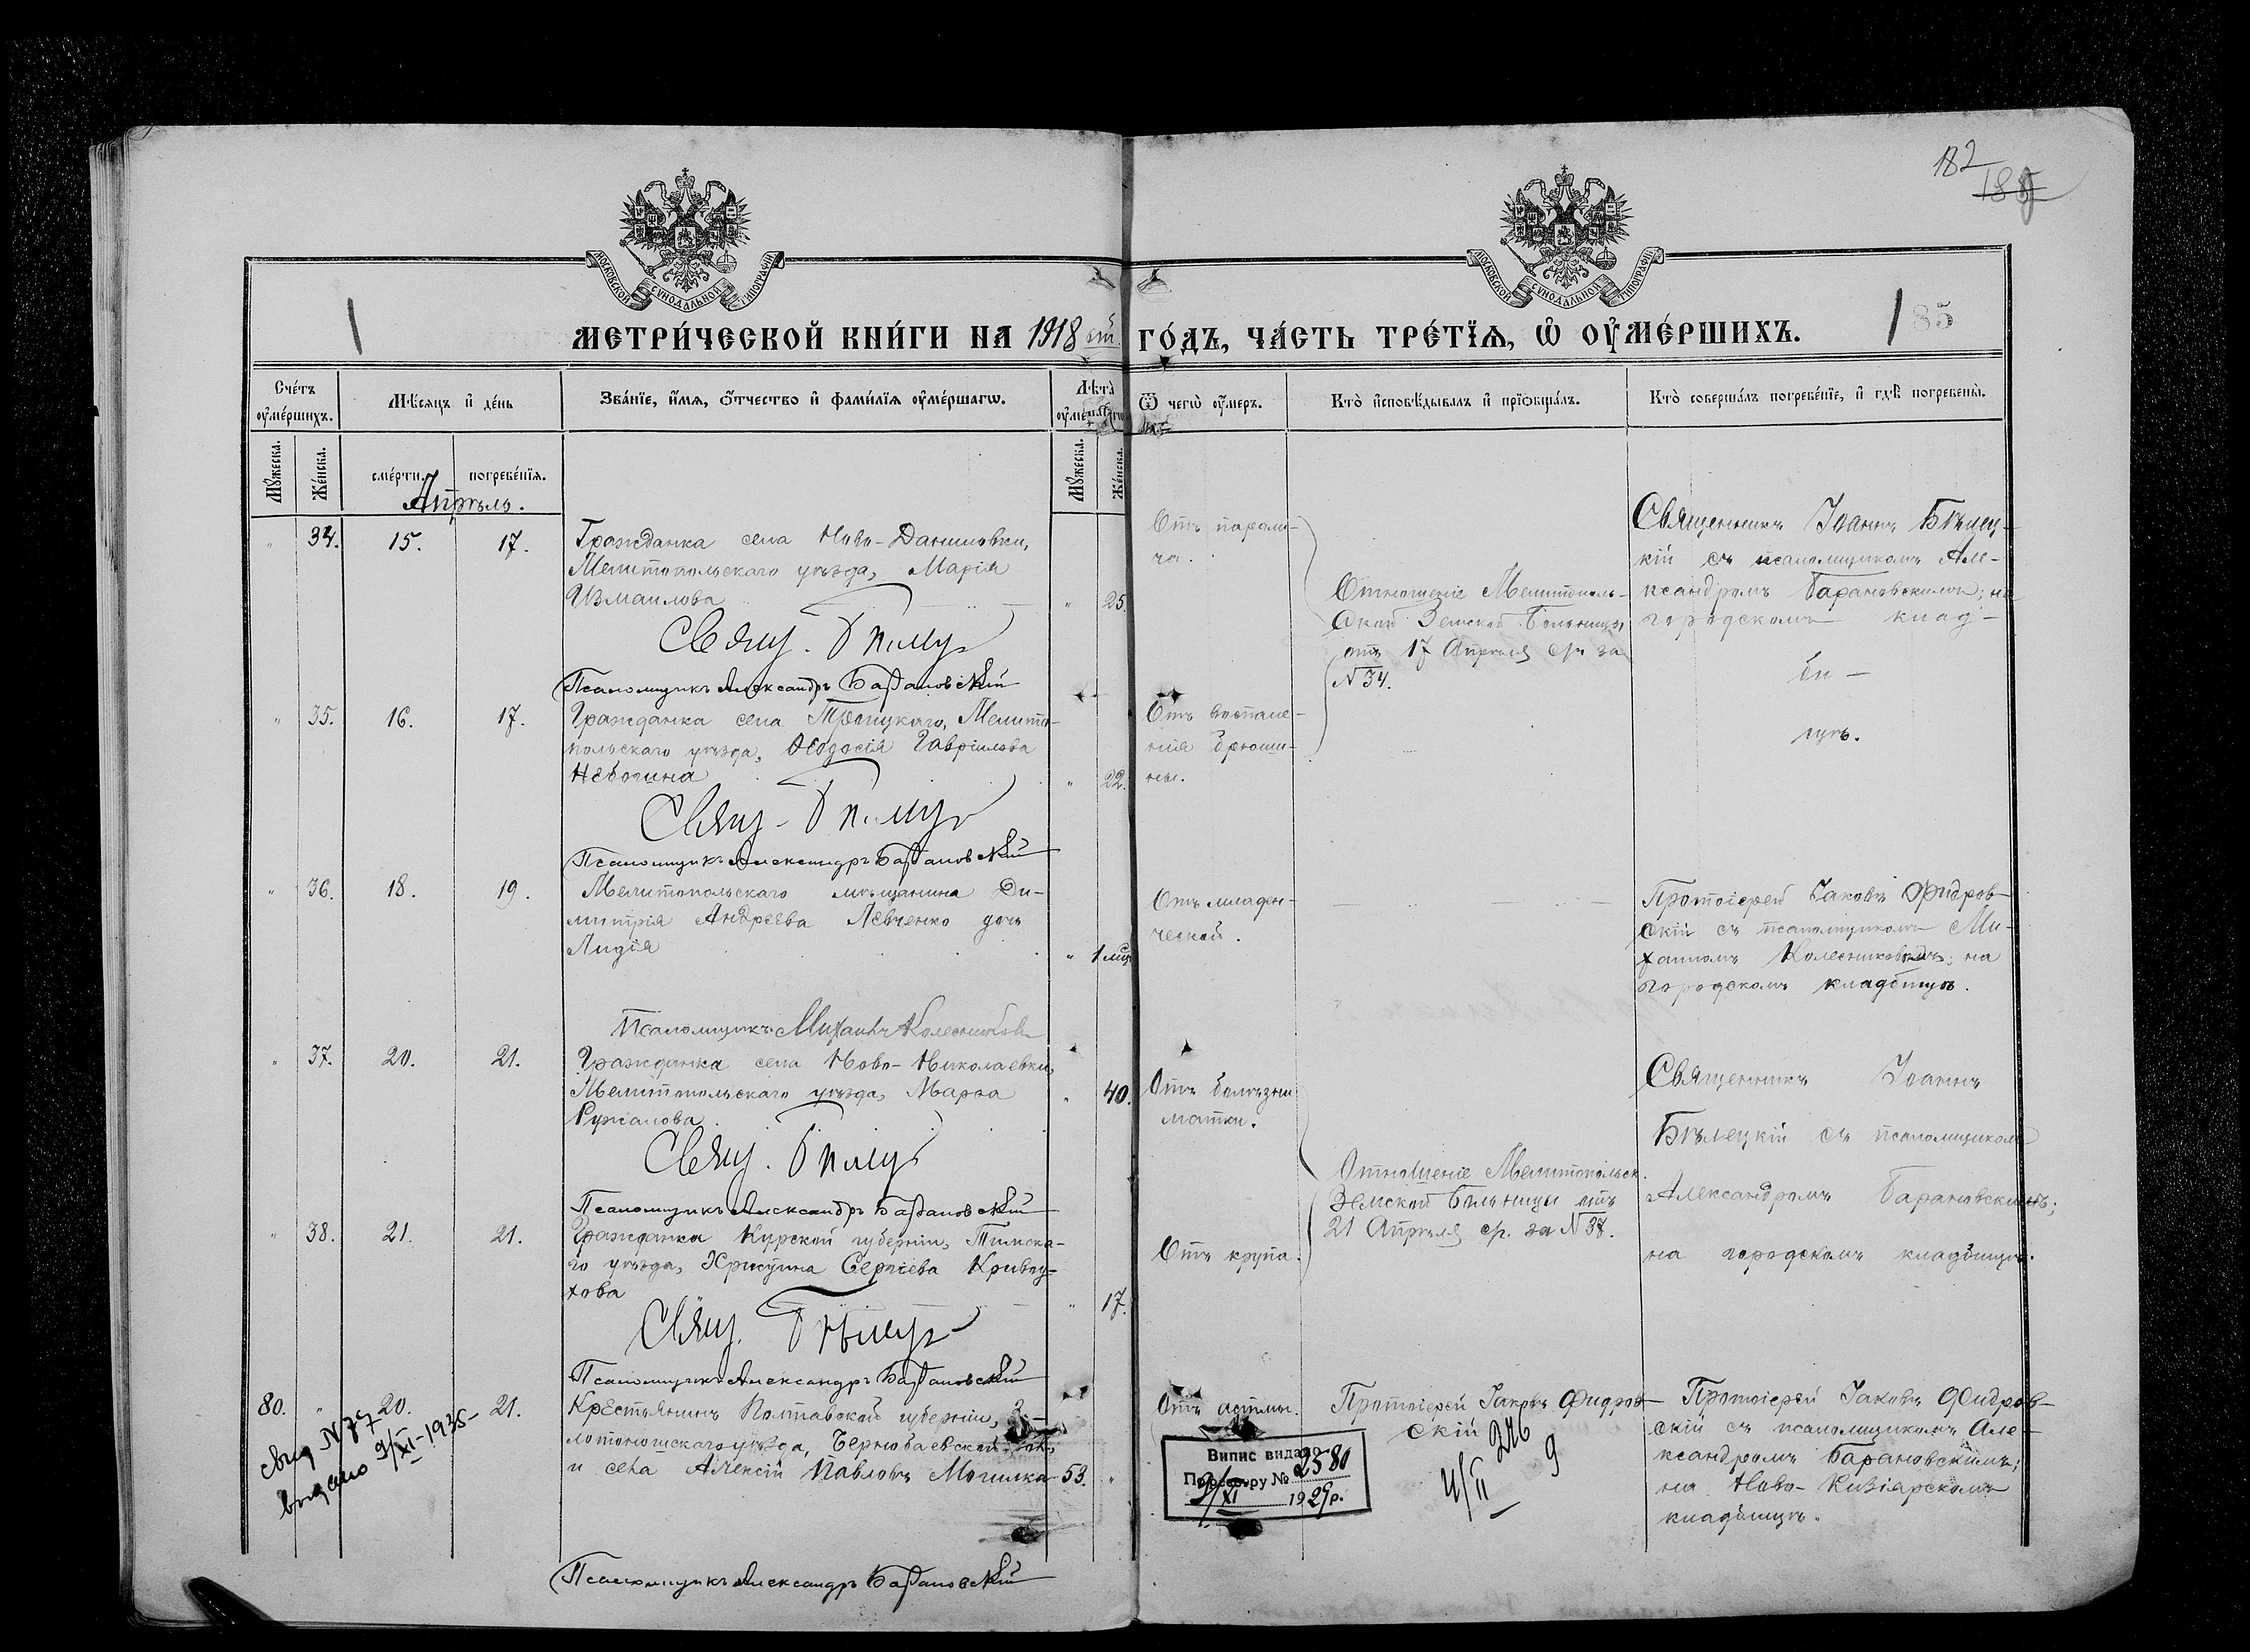 182
185
МОСКОВСКОЙ СѴНОДАЛЬНОЙ ТИПОГРАФІИ
МОСКОВСКОЙ СѴНОДАЛЬНОЙ ТИПОГРАФІИ
МЕТРИ́ЧЕСКОЙ КНИ́ГИ НА 1918 ый ГО́ДЪ, ЧА́СТЬ ТРЕ́ТЇѦ, Ѡ҆ ОУ҆МЕ́РШИХЪ.
85
Сче́тъ оу҆ме́ршихъ.
Мѣ́сяцъ и҆ де́нь
Зва́нїе, и҆́мя, ѻ҆́тчество и҆ фами́лїя оу҆ме́ршагѡ.
Лѣ́та оу҆ме́ршагѡ
Ѿ чегѡ̀ оу҆́меръ.
Кто̀ и҆сповѣ́дывалъ и҆ прїѡбща́лъ.
Кто̀ соверша́лъ погребе́нїе, и҆ гдѣ̀ погребены̀.
Мꙋ́жеска.
Же́нска.
сме́рти.
погребе́нїя.
Мꙋ́жеска.
Же́нска.
Апрѣль.
" 34. 15. 17.
Гражданка села Ново-Даниловки,
Мелитопольскаго уѣзда, Марія
Измаилова " 25.
Свящ. Бѣлец
Псаломщикъ Александръ Барановскій
Отъ парали-
ча.
Отношеніе Мелитополь-
ской Земской Больницы
отъ 17 Апрѣля с/г за
N 34.
Священникъ Іоаннъ Бѣлец-
кій съ псаломщикомъ Але-
ксандромъ Барановскимъ; на
городскомъ клад-
би-
щѣ.
" 35. 16. 17.
Гражданка села Троицкаго, Мелито-
польскаго уѣзда, Ѳеодосія Гавріилова
" 22.
Свящ. Бѣлец
Псаломщикъ Александръ Барановскій
Отъ воспале-
нія брюши-
ны.
" 36. 18. 19.
Мелитопольскаго мѣщанина Ди-
митрія Андреева Левченко дочь
Лидія " 1 мѣс.
Псаломщикъ Михаилъ Колесниковъ
Отъ младен-
ческой.
Протоіерей Іаковъ Фидров-
скій съ псаломщикомъ Ми-
хаиломъ Колесниковымъ; на
городскомъ кладбищѣ.
" 37. 20. 21.
Гражданка села Ново-Николаевки,
Мелитопольскаго уѣзда, Марѳа
" 40.
Свящ. Бѣлец
Псаломщикъ Александръ Барановскій
Отъ болѣзни
матки.
Отношеніе Мелитопольск.
Земской Больницы отъ
21 Апрѣля с/г. за N 37.
Священникъ Іоаннъ
Бѣлецкій съ псаломщикомъ
Александромъ Барановскимъ;
на городскомъ кладбищѣ.
" 38. 21. 21.
Гражданка Курской губерніи, Тимска-
го уѣзда, Сергіева Кривоу-
хова " 17.
Свящ. Бѣлец
Псаломщикъ Александръ Барановскій
Отъ крупа.
80. " 20. 21.
Крестьянинъ Полтавской губерніи, З-
лотоношскаго уѣзда, Чернобаевской вол.
и села Алексій Павловъ Могилка 53. "
Псаломщикъ Александръ Барановскій
свид N 77
выдано 9/XI-1935-
Отъ астмы.
Протоіерей Іаковъ Фидров-
скій
Протоіерей Іаковъ Фидров-
скій съ псаломщикомъ Але-
ксандромъ Барановскимъ;
на Ново-Кизіярскомъ
кладбищѣ.
Випис видано
По реєстру № 2580
9/XI 1929 р.
246
4/II 9